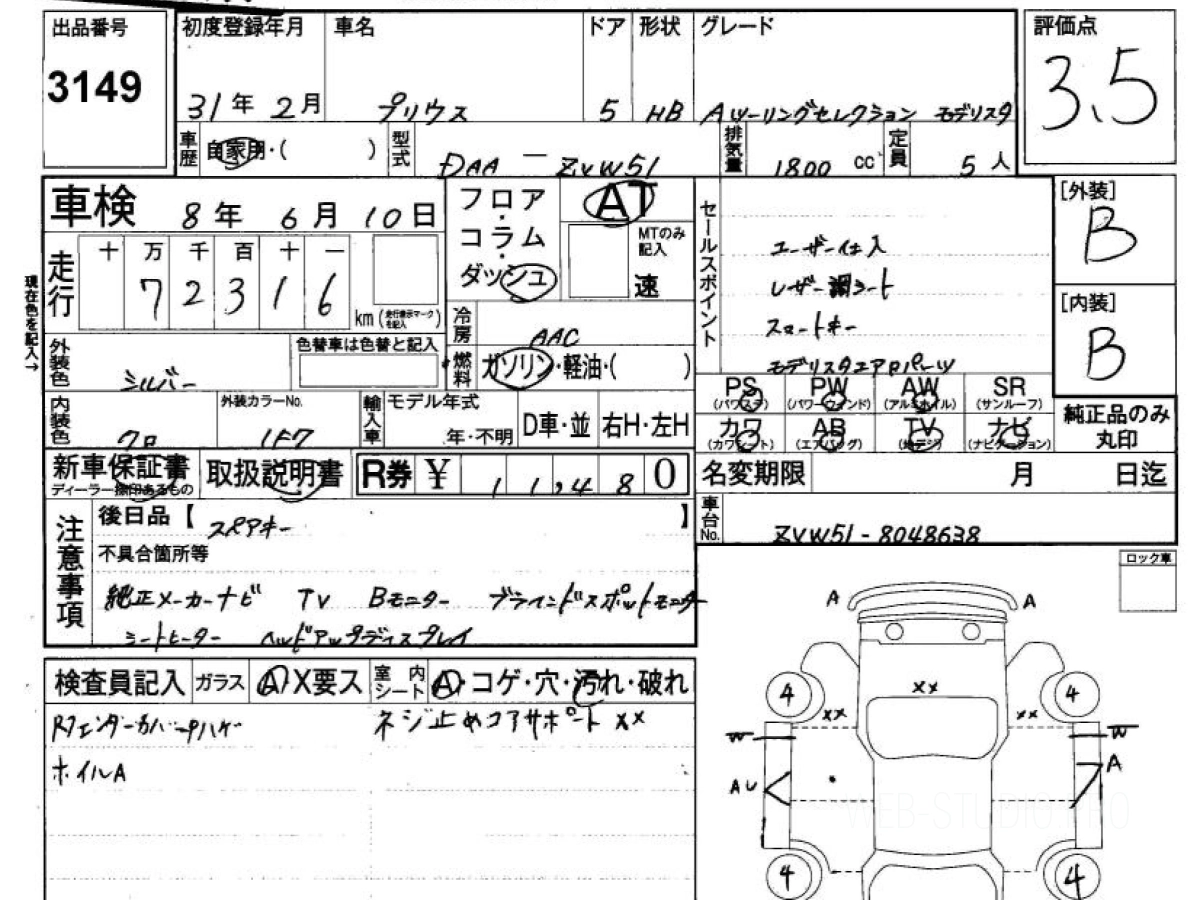 出品番号 初度登録年月 車名 ドア 形状 グレード 評価点
3149 31年 2月 プリウス 5 HB Aツーリングセレクション モデリスタ 3.5
車歴 自家用・( ) 型式 DAA-ZVW51 排気量 1800 cc 定員 5人
車検 8年 6月 10日 フロア・コラム・ダッシュ AT MTのみ記入 速 セールスポイント [外装] B
ユーザー仕入
レザー調シート
スマートキー
モデリスタエアロパーツ
現在色を記入→ 走行 十 万 千 百 十 一
72316 km (走行表示マークを記入) [内装] B
外装色 シルバー 色替車は色替と記入 冷房 AAC
燃料 ガソリン・軽油・( )
PS (パワステ) PW (パワーウインド) AW (アルミホイル) SR (サンルーフ)
カワ (カワシート) AB (エアバック) TV (地デジ) ナビ (ナビゲーション) 純正品のみ丸印
内装色 クロ 外装カラーNo. 1F7 輸入車 モデル年式 年・不明 D車・並 右H・左H
新車保証書 ディーラー捺印あるもの 取扱説明書 R券 ¥ 11,480 名変期限 月 日迄
注意事項 後日品【 スペアキー 】 車台No. ZVW51-8048638
不具合箇所等 ロック車
純正メーカーナビ TV Bモニター ブラインドスポットモニター
シートヒーター ヘッドアップディスプレイ
検査員記入 ガラス A X要ス 室内シート A・コゲ・穴・汚れ・破れ
Rフェンダーカバー ネジ止め コアサポート XX
ホイルA
A A
XX
4 4
XX XX
W W
AU A
WEB-STUDIO.PRO
4 4